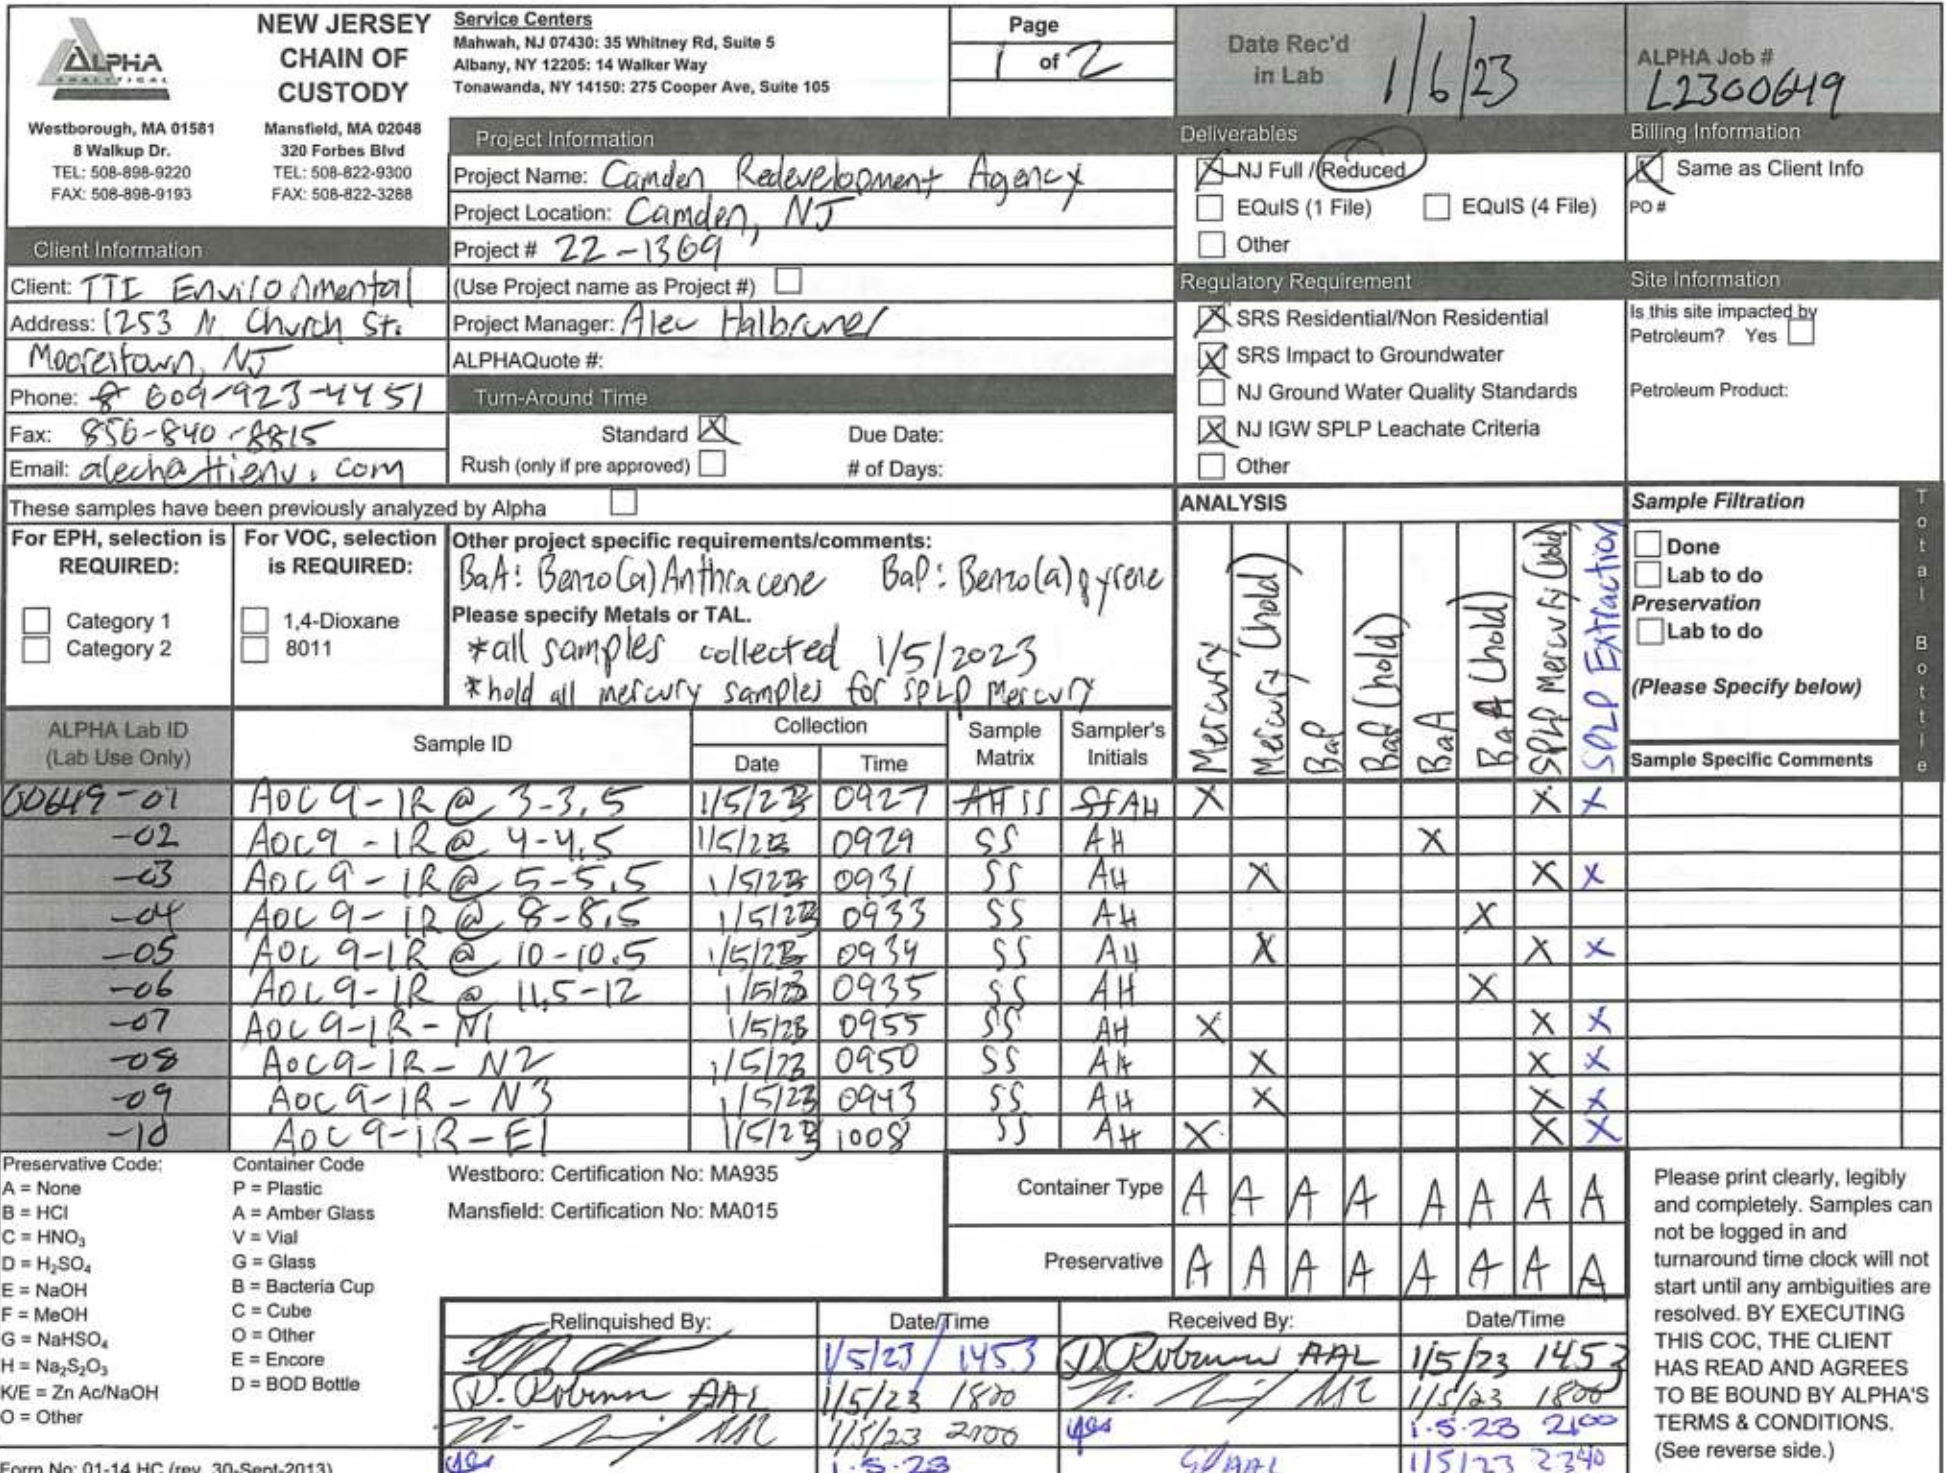 ALPHA
ANALYTICAL
NEW JERSEY
CHAIN OF
CUSTODY
Westborough, MA 01581
8 Walkup Dr.
TEL: 508-898-9220
FAX: 508-898-9193
Mansfield, MA 02048
320 Forbes Blvd
TEL: 508-822-9300
FAX: 508-822-3288
Service Centers
Mahwah, NJ 07430: 35 Whitney Rd, Suite 5
Albany, NY 12205: 14 Walker Way
Tonawanda, NY 14150: 275 Cooper Ave, Suite 105
Page
1 of 2
Date Rec'd
in Lab
1/6/23
ALPHA Job #
L2300649
Client Information
Client: TTI Environmental
Address: 1253 N Church St.
Moorestown, NJ
Phone: 609-923-4451
Fax: 856-840-8815
Email: alecha ttienv.com
Project Information
Project Name: Camden Redevelopment Agency
Project Location: Camden, NJ
Project # 22-1369
(Use Project name as Project #)
Project Manager: Alec Halbruner
ALPHAQuote #:
Turn-Around Time
Standard X Due Date:
Rush (only if pre approved) # of Days:
Deliverables
X NJ Full / Reduced
EQuIS (1 File) EQuIS (4 File)
Other
Regulatory Requirement
X SRS Residential/Non Residential
X SRS Impact to Groundwater
NJ Ground Water Quality Standards
X NJ IGW SPLP Leachate Criteria
Other
Billing Information
X Same as Client Info
PO #
Site Information
Is this site impacted by
Petroleum? Yes
Petroleum Product:
These samples have been previously analyzed by Alpha
For EPH, selection is
REQUIRED:
Category 1
Category 2
For VOC, selection
is REQUIRED:
1,4-Dioxane
8011
Other project specific requirements/comments:
BaA: Benzo(a)Anthracene BaP: Benzo(a)pyrene
Please specify Metals or TAL.
*all samples collected 1/5/2023
*hold all mercury samples for SPLP Mercury
ANALYSIS
Mercury
Mercury (hold)
BaP
BaP (hold)
BaA
BaA (hold)
SPLP Mercury (hold)
SPLP Extraction
Sample Filtration
Done
Lab to do
Preservation
Lab to do
(Please Specify below)
Total Bottle
ALPHA Lab ID
(Lab Use Only)
Sample ID
Collection
Date Time
Sample
Matrix
Sampler's
Initials
Sample Specific Comments
00649-01 AOC9-1R @ 3-3.5 1/5/23 0927 SS AH X X X
-02 AOC9-1R @ 4-4.5 1/5/23 0929 SS AH X
-03 AOC9-1R @ 5-5.5 1/5/23 0931 SS AH X X X
-04 AOC9-1R @ 8-8.5 1/5/23 0933 SS AH X
-05 AOC9-1R @ 10-10.5 1/5/23 0934 SS AH X X X
-06 AOC9-1R @ 11.5-12 1/5/23 0935 SS AH X
-07 AOC9-1R-N1 1/5/23 0955 SS AH X X X
-08 AOC9-1R-N2 1/5/23 0950 SS AH X X X
-09 AOC9-1R-N3 1/5/23 0943 SS AH X X X
-10 AOC9-1R-E1 1/5/23 1008 SS AH X X X
Preservative Code:
A = None
B = HCl
C = HNO₃
D = H₂SO₄
E = NaOH
F = MeOH
G = NaHSO₄
H = Na₂S₂O₃
K/E = Zn Ac/NaOH
O = Other
Container Code
P = Plastic
A = Amber Glass
V = Vial
G = Glass
B = Bacteria Cup
C = Cube
O = Other
E = Encore
D = BOD Bottle
Westboro: Certification No: MA935
Mansfield: Certification No: MA015
Container Type A A A A A A A A
Preservative A A A A A A A A
Relinquished By: Date/Time Received By: Date/Time
1/5/23 / 1453 AAL 1/5/23 1453
AAL 1/5/23 1800 1/5/23 1800
AAL 1/5/23 2000 1.5.23 2100
1.5.23 AAL 1/5/23 2340
Please print clearly, legibly
and completely. Samples can
not be logged in and
turnaround time clock will not
start until any ambiguities are
resolved. BY EXECUTING
THIS COC, THE CLIENT
HAS READ AND AGREES
TO BE BOUND BY ALPHA'S
TERMS & CONDITIONS.
(See reverse side.)
Form No: 01-14 HC (rev. 30-Sept-2013)